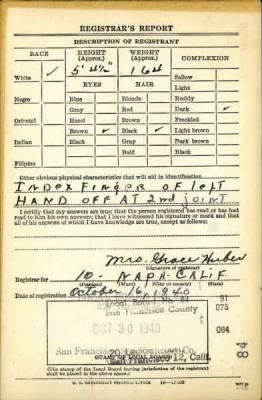 REGISTRAR'S REPORT
DESCRIPTION OF REGISTRANT
RACE HEIGHT (Approx.) WEIGHT (Approx.) COMPLEXION
White ✓ 5' 4½" 164 Sallow
EYES HAIR Light
Negro Blue Blonde Ruddy
Gray Red Dark ✓
Oriental Hazel Brown Freckled
Brown ✓ Black ✓ Light brown
Indian Black Gray Dark brown
Bald Black
Filipino
Other obvious physical characteristics that will aid in identification
INDEX FINGER OF left
HAND OFF AT 2nd JOINT
I certify that my answers are true; that the person registered has read or has had
read to him his own answers; that I have witnessed his signature or mark and that
all of his answers of which I have knowledge are true, except as follows:
Mrs. Grace
(Signature of registrar)
Registrar for 10 - NAPA - CALIF
(Precinct) (City or county) (State)
Date of registration October 16, 1940
Local Board No. 84 91
San Francisco County 075
OCT 30 1940
084
San Francisco 12, Calif.
(STAMP OF LOCAL BOARD)
(The stamp of the Local Board having jurisdiction of the registrant
shall be placed in the above space.)
U. S. GOVERNMENT PRINTING OFFICE
84